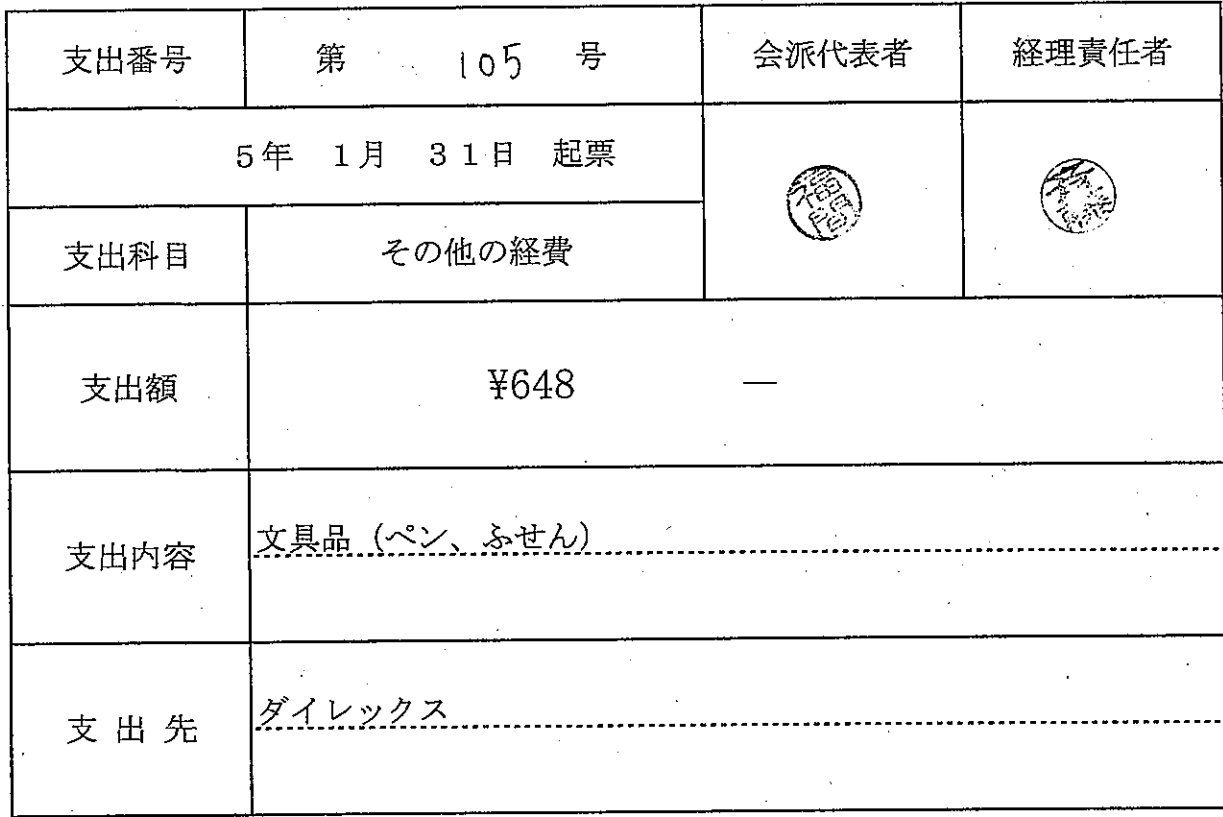 支出番号 第 105 号 会派代表者 経理責任者
5年 1月 31日 起票
支出科目 その他の経費
支出額 ¥648 ―
支出内容 文具品（ペン、ふせん）
支出先 ダイレックス